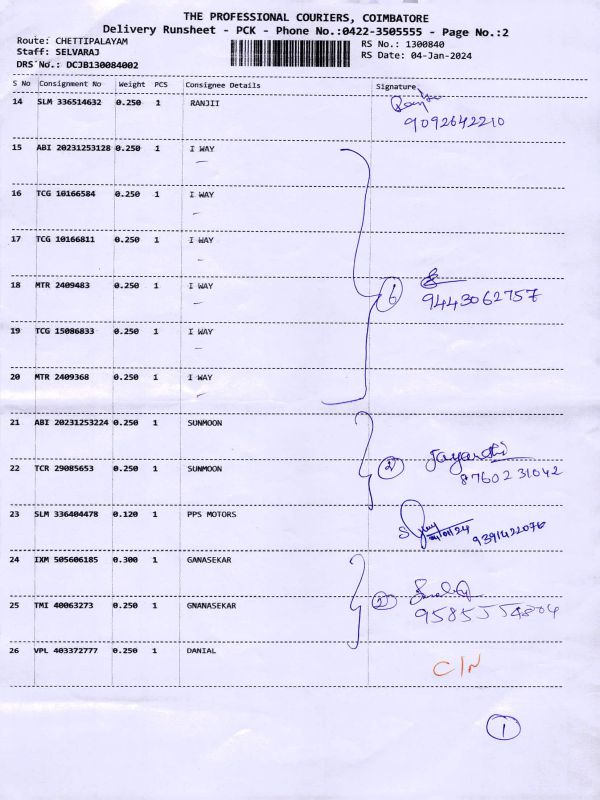 THE PROFESSIONAL COURIERS, COIMBATORE
Delivery Runsheet - PCK - Phone No.:0422-3505555 - Page No.:2
Route: CHETTIPALAYAM
Staff: SELVARAJ
DRS No.: DCJB130084002
RS No.: 1300840
RS Date: 04-Jan-2024
S No Consignment No Weight PCS Consignee Details Signature
14 SLM 336514632 0.250 1 RANJII
9092642210
15 ABI 20231253128 0.250 1 I WAY
16 TCG 10166584 0.250 1 I WAY
17 TCG 10166811 0.250 1 I WAY
18 MTR 2409483 0.250 1 I WAY 6 9443062757
19 TCG 15086833 0.250 1 I WAY
20 MTR 2409368 0.250 1 I WAY
21 ABI 20231253224 0.250 1 SUNMOON
22 TCR 29085653 0.250 1 SUNMOON 2 Jayanthi
8760231042
23 SLM 336404478 0.120 1 PPS MOTORS
9391422076
24 IXM 505606185 0.300 1 GANASEKAR
25 TMI 40063273 0.250 1 GNANASEKAR 2
26 VPL 403372777 0.250 1 DANIAL C/N
1